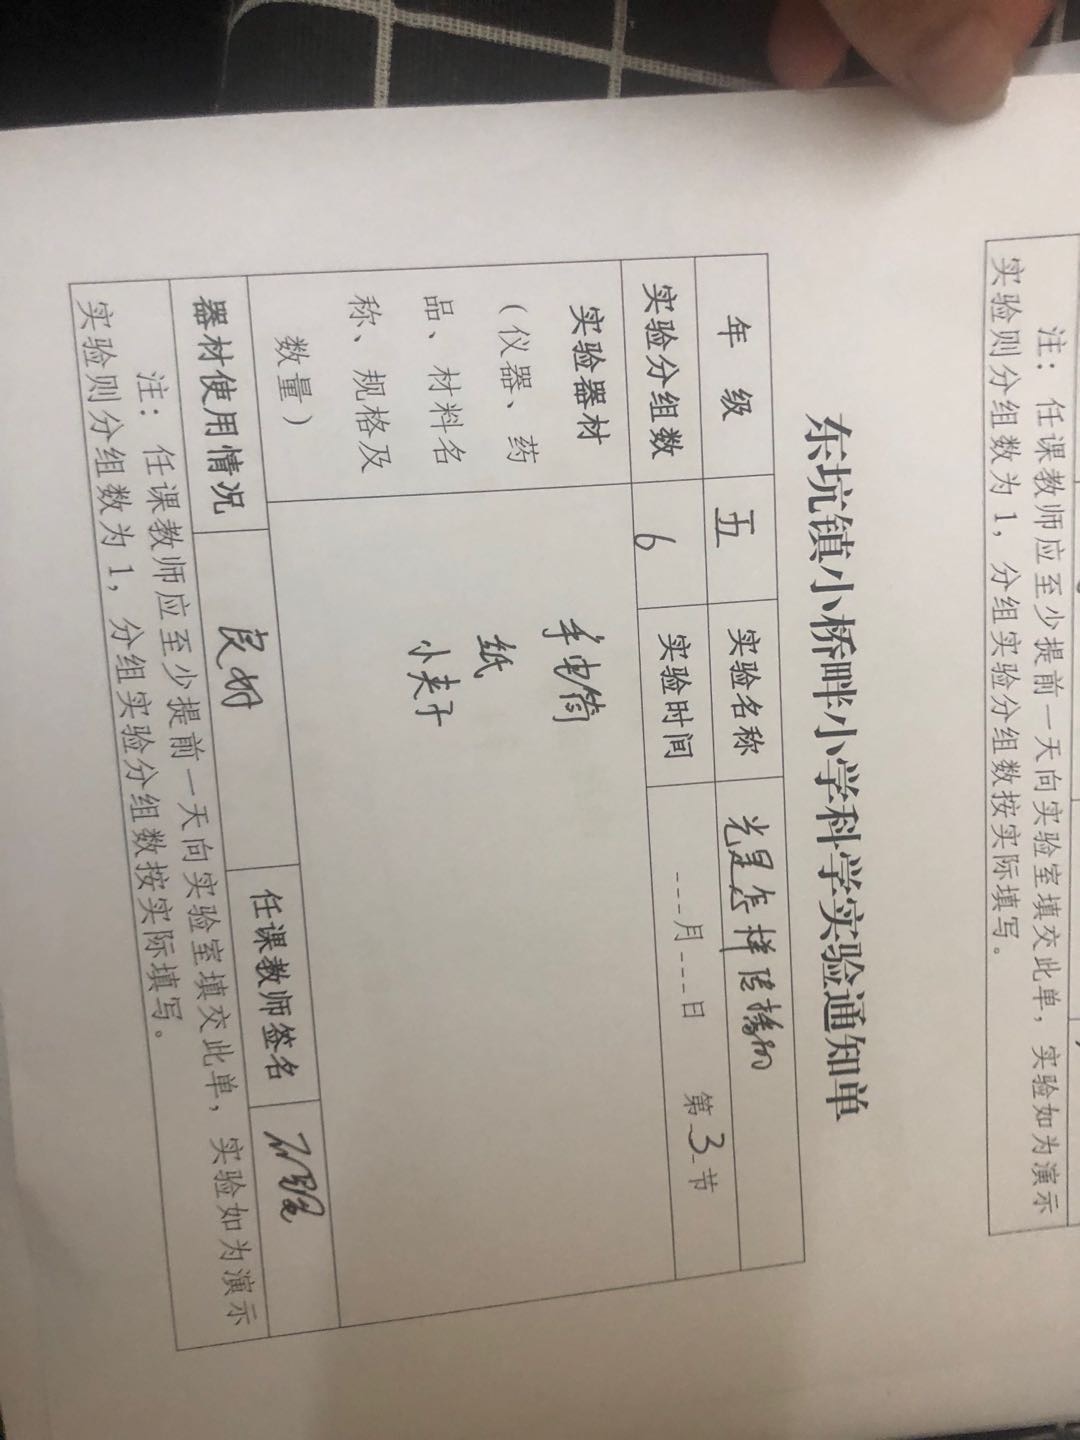 注：任课教师应至少提前一天向实验室填交此单，实验如为演示
实验则分组数为1，分组实验分组数按实际填写。
东坑镇小桥畔小学科学实验通知单
年 级 五 实验名称 光是怎样传播的
实验分组数 6 实验时间 ---月---日 第3节
实验器材
（仪器、药
品、材料名
称、规格及
数量）
手电筒
纸
小夹子
器材使用情况 良好 任课教师签名
注：任课教师应至少提前一天向实验室填交此单，实验如为演示
实验则分组数为1，分组实验分组数按实际填写。